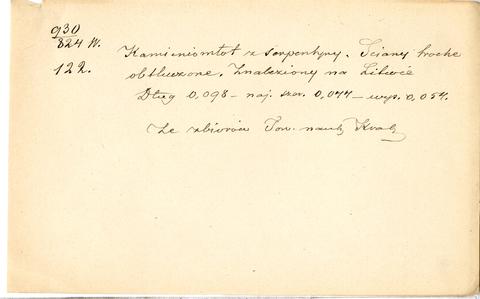 930
824 W.
122.
Kamieniomłot z serpentyny. Ściany troche
obtłuczone. Znaleziony na Litwie
Dług 0,098 – naj. szer. 0,044 – wys. 0,054.
Ze zbiorów Tow. nauk Krak